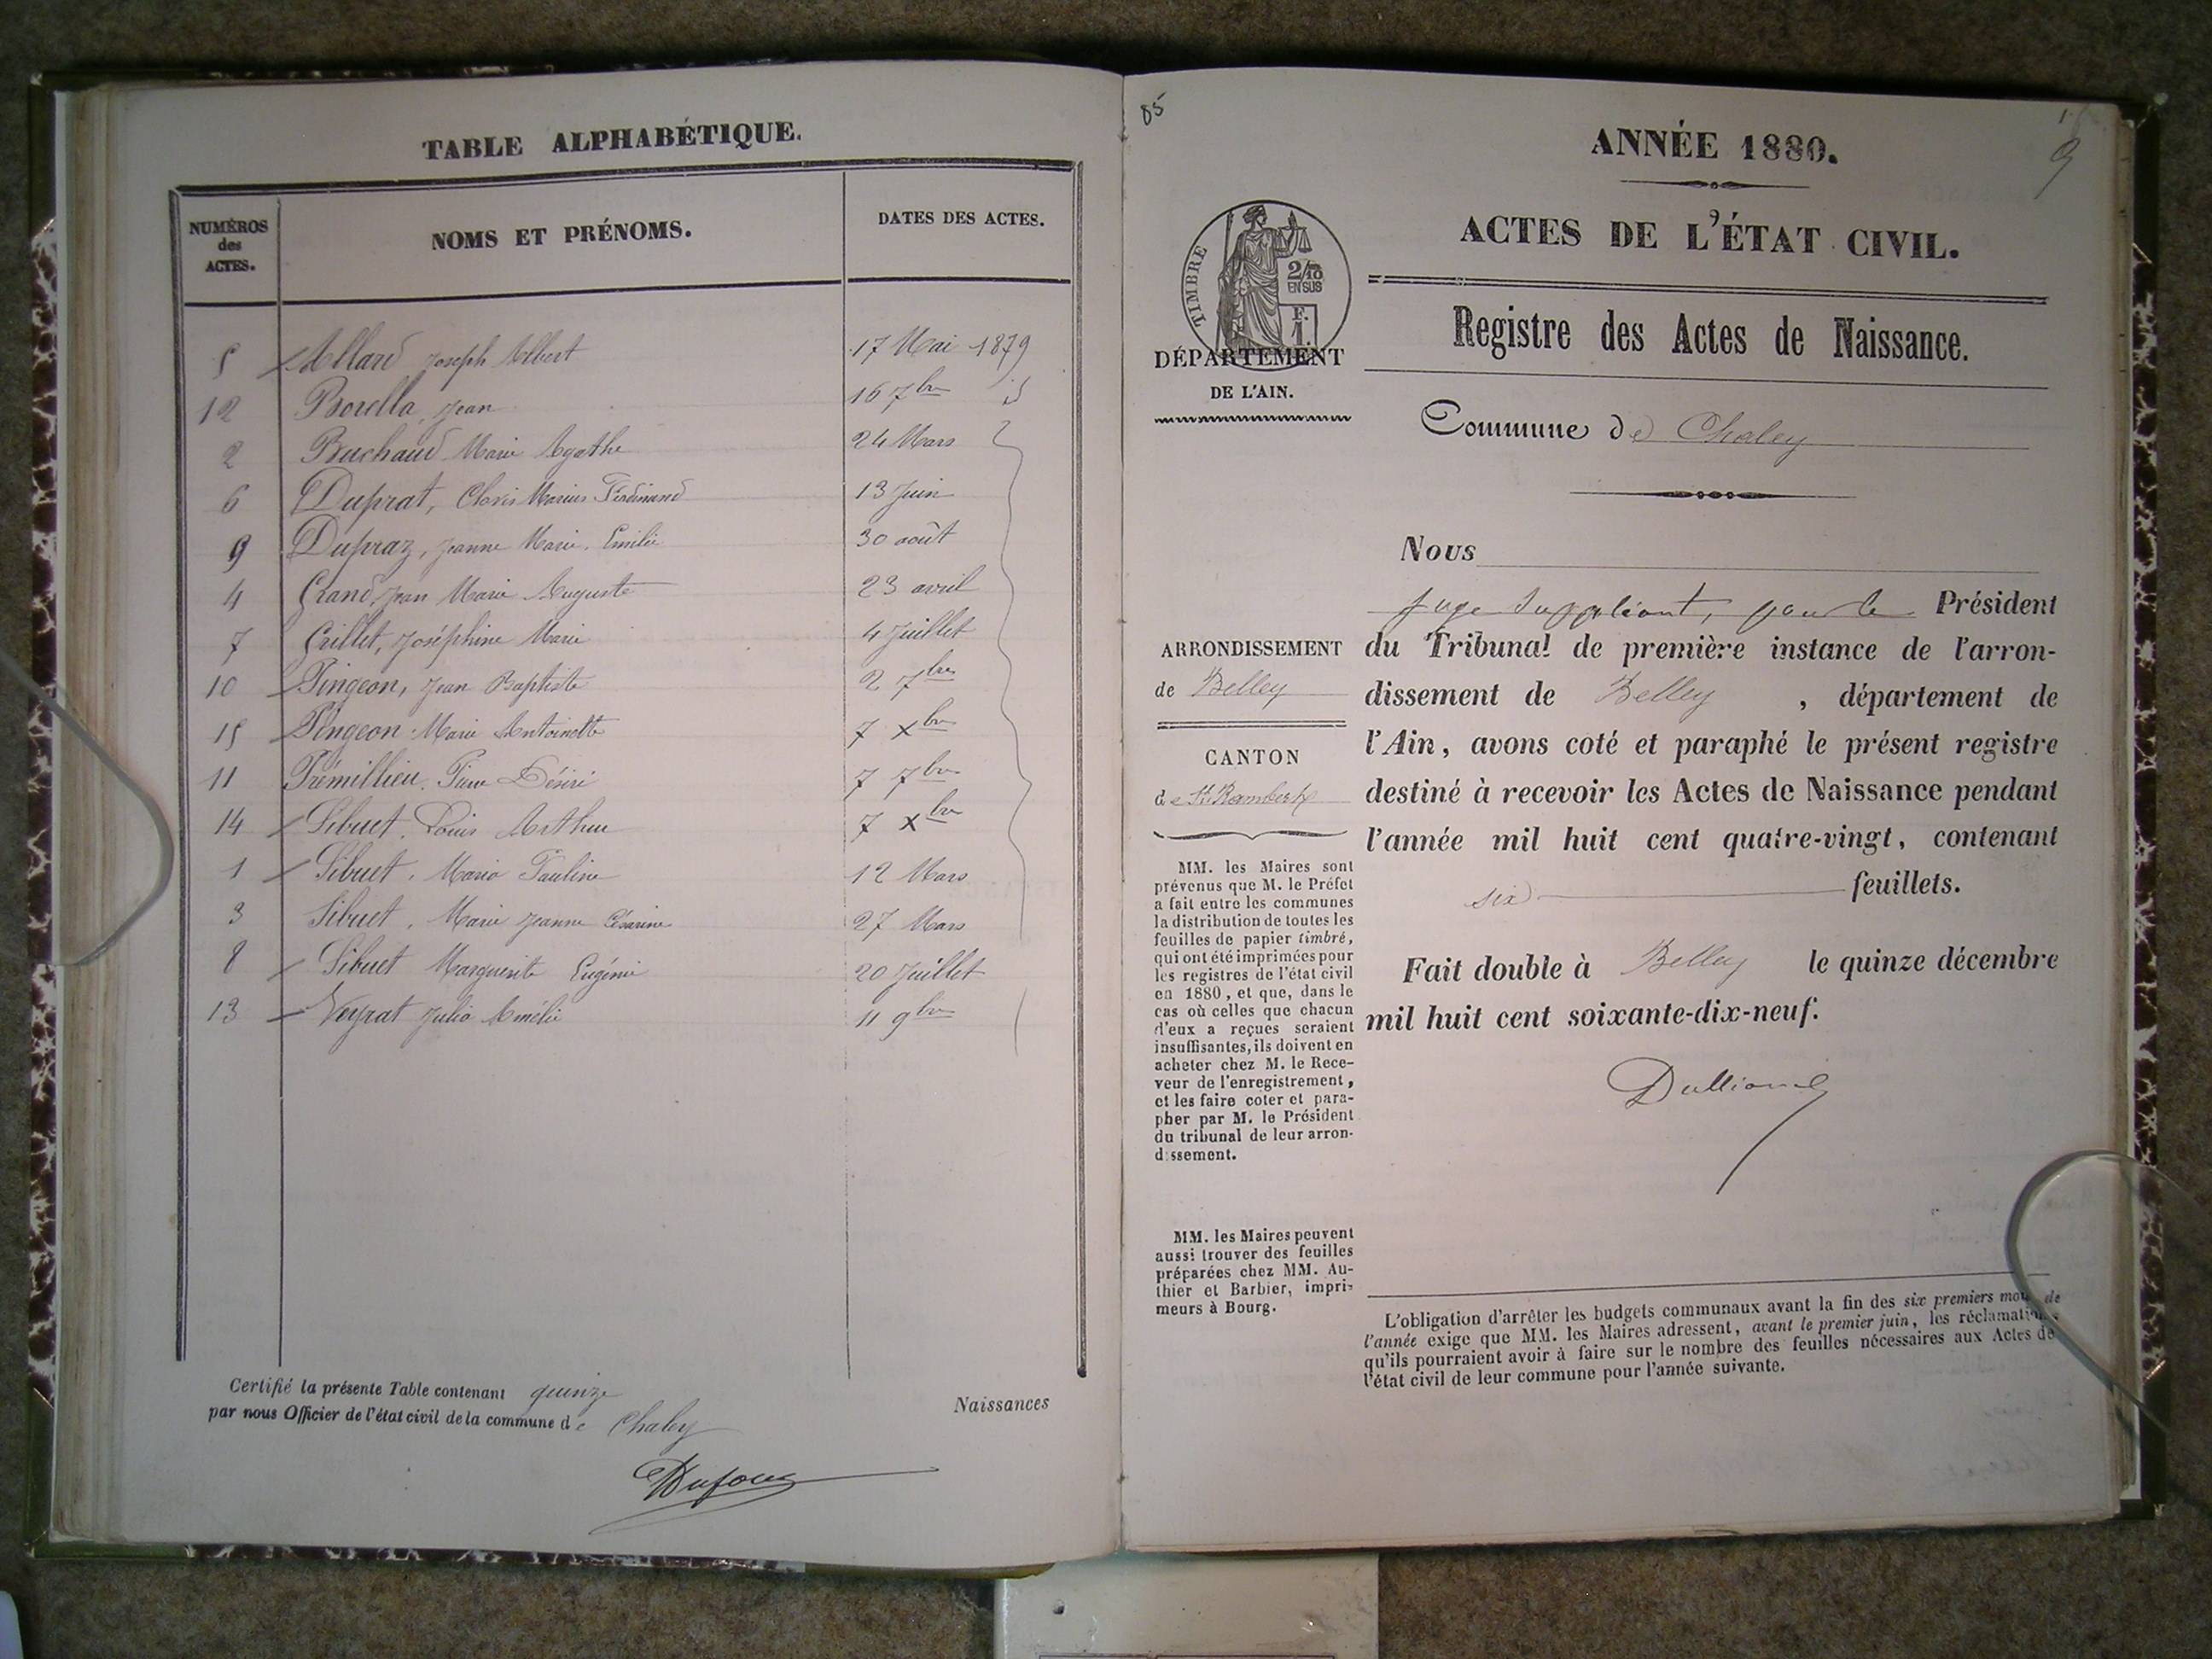 TABLE ALPHABÉTIQUE.
NUMÉROS
des
ACTES.
NOMS ET PRÉNOMS.
DATES DES ACTES.
5 Allard Joseph Albert 17 Mai 1879
12 Borella, Jean 16 7bre id
2 Buchaud Marie Agathe 24 Mars
6 Duprat, Clovis Marius Ferdinand 13 Juin
9 Dupraz, Jeanne Marie Emilie 30 août
4 Grand, Jean Marie Auguste 23 avril
7 Grillet, Joséphine Marie 4 Juillet
10 Pingeon, Jean Baptiste 2 7bre
15 Pingeon Marie Antoinette 7 xbre
11 Prémillieu Pierre Désiré 7 7bre
14 Sibuet, Louis Arthur 7 xbre
1 Sibuet, Maria Pauline 12 Mars
3 Sibuet, Marie Jeanne Césarine 27 Mars
8 Sibuet Marguerite Eugénie 20 Juillet
13 Veyrat Julia Amélie 11 9bre
Certifié la présente Table contenant quinze Naissances
par nous Officier de l'état civil de la commune de Chaley
Dufour
85
9
ANNÉE 1880.
ACTES DE L'ÉTAT CIVIL.
TIMBRE
2/10
EN SUS
F.
1.
Registre des Actes de Naissance.
DÉPARTEMENT
DE L'AIN.
Commune de Chaley
Nous
juge suppléant, pour le Président
du Tribunal de première instance de l'arron-
dissement de Belley, département de
l'Ain, avons coté et paraphé le présent registre
destiné à recevoir les Actes de Naissance pendant
l'année mil huit cent quatre-vingt, contenant
six feuillets.
Fait double à Belley le quinze décembre
mil huit cent soixante-dix-neuf.
ARRONDISSEMENT
de Belley
CANTON
de St Rambert
MM. les Maires sont
prévenus que M. le Préfet
a fait entre les communes
la distribution de toutes les
feuilles de papier timbré,
qui ont été imprimées pour
les registres de l'état civil
en 1880, et que, dans le
cas où celles que chacun
d'eux a reçues seraient
insuffisantes, ils doivent en
acheter chez M. le Rece-
veur de l'enregistrement,
et les faire coter et para-
pher par M. le Président
du tribunal de leur arron-
dissement.
MM. les Maires peuvent
aussi trouver des feuilles
préparées chez MM. Au-
thier et Barbier, impri-
meurs à Bourg.
L'obligation d'arrêter les budgets communaux avant la fin des six premiers mois de
l'année exige que MM. les Maires adressent, avant le premier juin, les réclamations
qu'ils pourraient avoir à faire sur le nombre des feuilles nécessaires aux Actes de
l'état civil de leur commune pour l'année suivante.